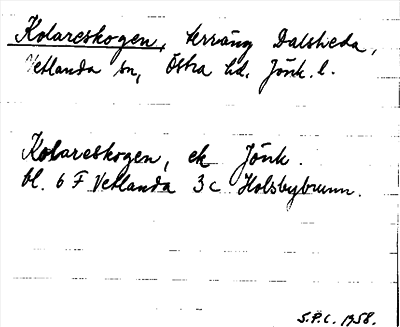 Kolareskogen, terräng Dalstieda,
Vetlanda sn, Östra hd. Jönk. l.
Kolareskogen, ek Jönk.
bl. 6 F Vetlanda 3 c Holsbybrunn.
S.P.C. 1958.